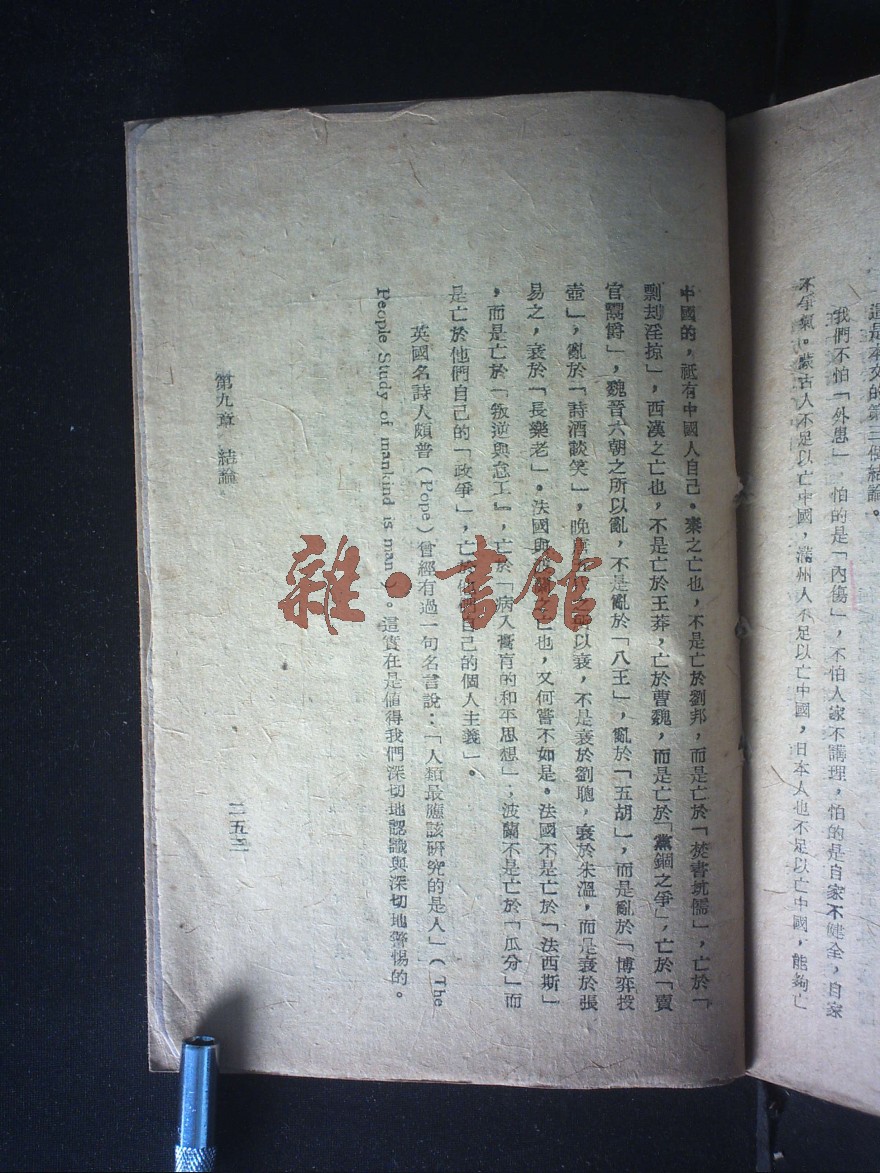 這是本文的第三個結論。
我們不怕「外患」，怕的是「內傷」，不怕人家不講理，怕的是自家不健全，自家
不爭氣。蒙古人不足以亡中國，滿州人不足以亡中國，日本人也不足以亡中國，能夠亡
中國的，祗有中國人自己。秦之亡也，不是亡於劉邦，而是亡於「焚書坑儒」，亡於「
剽刦淫掠」，西漢之亡也，不是亡於王莽，亡於曹魏，而是亡於「黨錮之爭」，亡於「賣
官鬻爵」，魏晉六朝之所以亂，不是亂於「八王」，亂於「五胡」，而是亂於「博弈投
壺」，亂於「詩酒談笑」，晚以衰，不是衰於劉聰，衰於朱溫，而是衰於張
易之，衰於「長樂老」。法國與也，又何嘗不如是。法國不是亡於「法西斯」
，而是亡於「叛逆與怠工」，亡於「病入膏肓的和平思想」；波蘭不是亡於「瓜分」而
是亡於他們自己的「政爭」，亡於他們自己的個人主義」。
英國名詩人頗普（Pope）曾經有過一句名言說：「人類最應該研究的是人」（The
People Study of mankind is man）。這實在是値得我們深切地認識與深切地警惕的。
第九章 結論
二五三
雜·書館